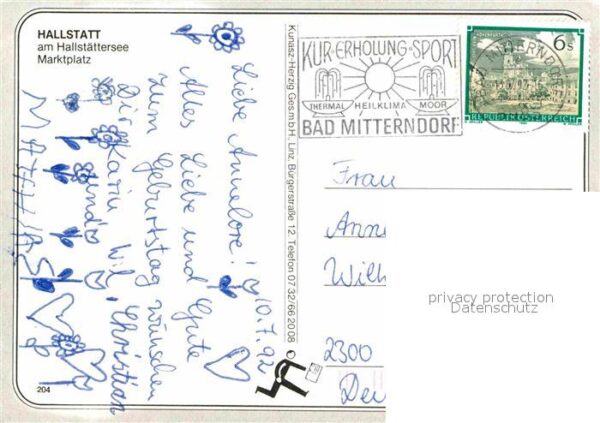 HALLSTATT
am Hallstättersee
Marktplatz
10.7.92
Liebe Annelore!
Alles Liebe und Gute
zum Geburtstag wünschen
Dir Karin, Wil, Christian
und
MATTHIAS
204
Kunasz-Herzig Ges.m.b.H. Linz, Bürgerstraße 12, Telefon 0732/662008
KUR·ERHOLUNG·SPORT
THERMAL HEILKLIMA MOOR
BAD MITTERNDORF
6s
REPUBLIK ÖSTERREICH
Frau
Ann
Wilh
2300
Deu
privacy protection
Datenschutz